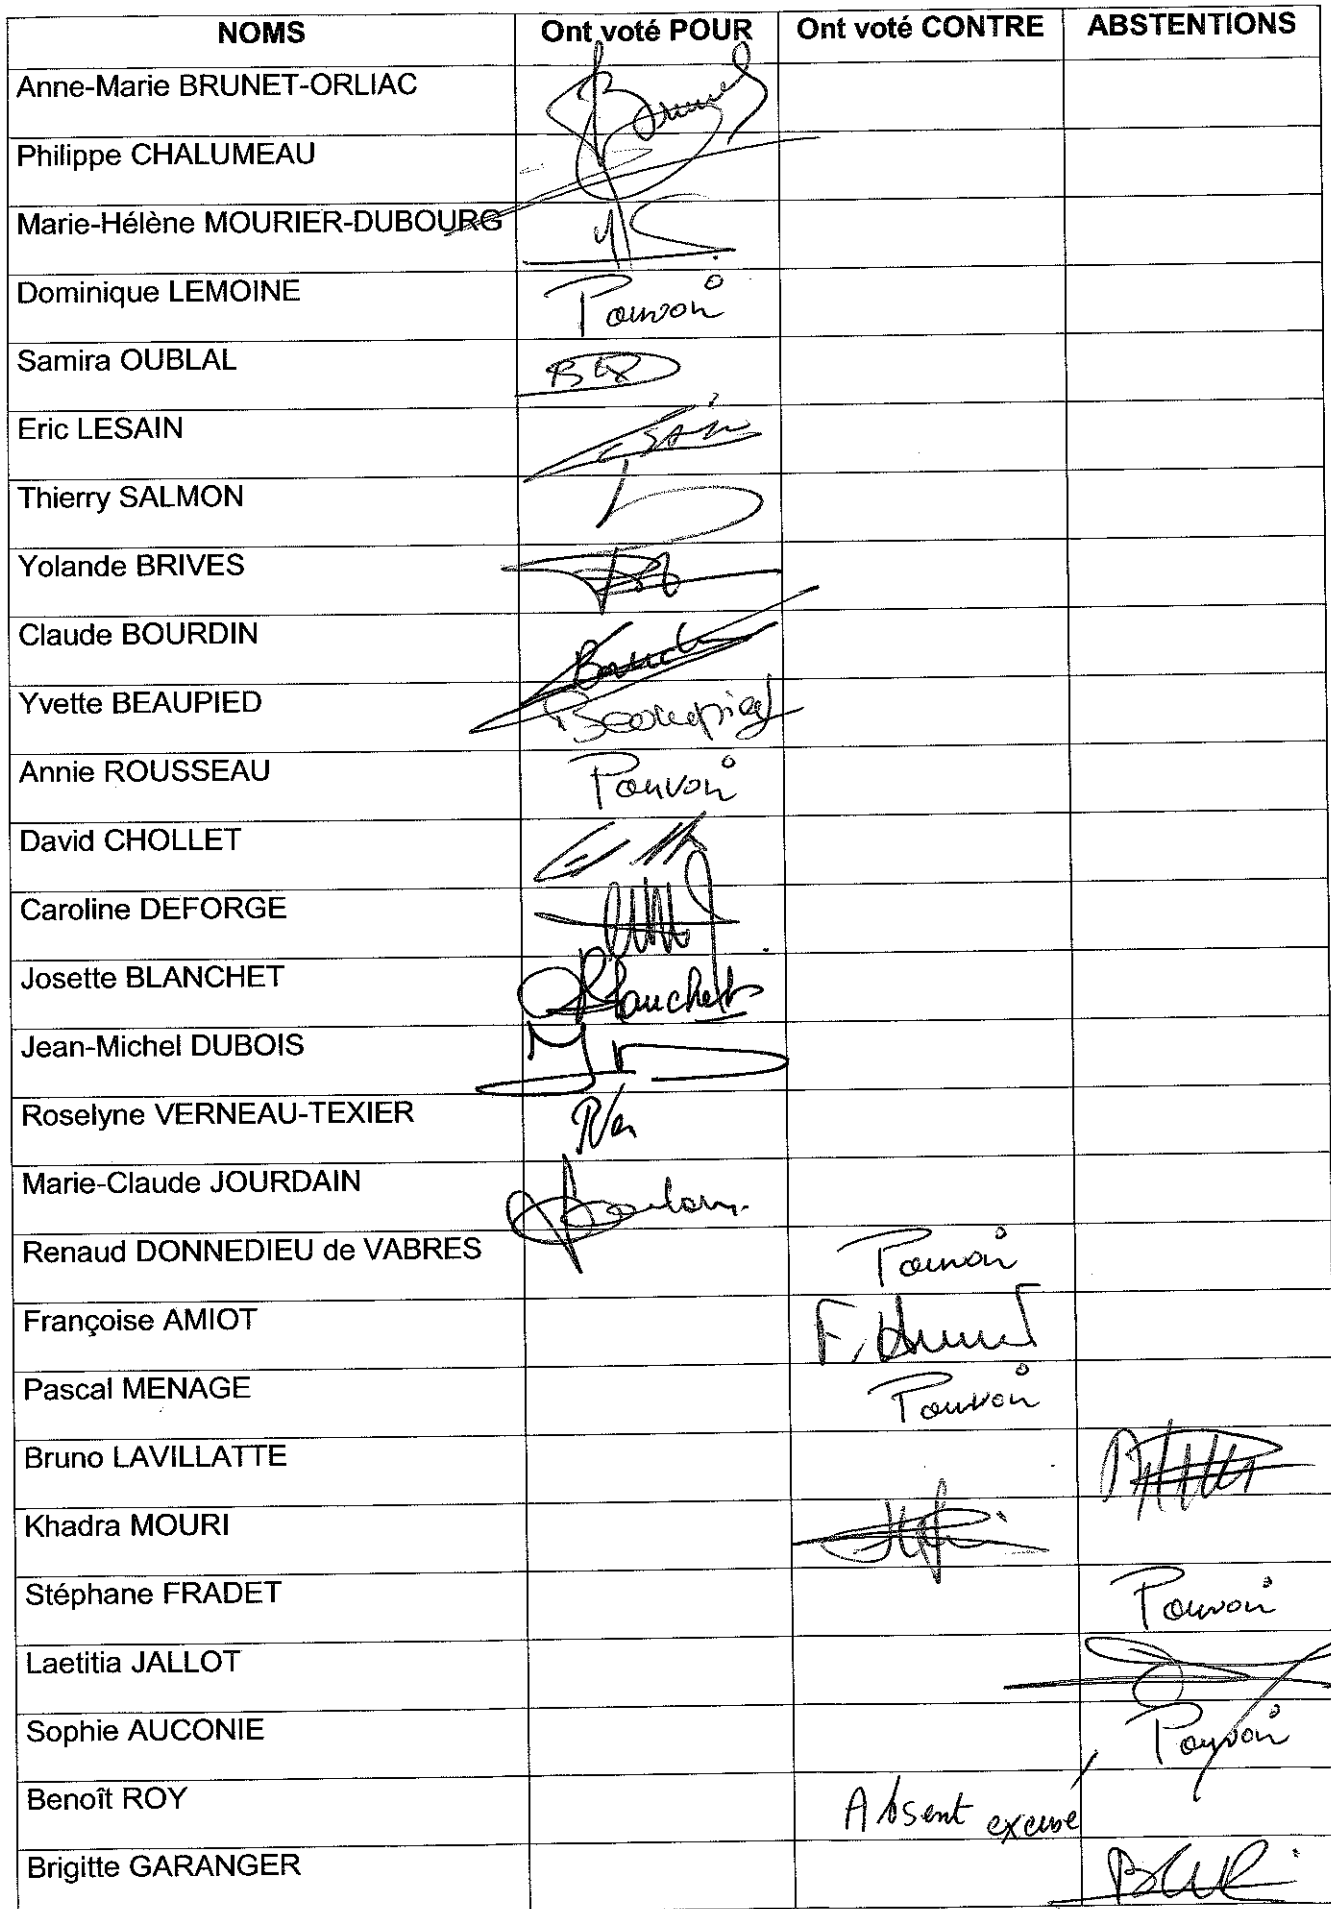 NOMS Ont voté POUR Ont voté CONTRE ABSTENTIONS
Anne-Marie BRUNET-ORLIAC
Philippe CHALUMEAU
Marie-Hélène MOURIER-DUBOURG
Dominique LEMOINE Pouvoir
Samira OUBLAL
Eric LESAIN
Thierry SALMON
Yolande BRIVES
Claude BOURDIN
Yvette BEAUPIED Beaupied
Annie ROUSSEAU Pouvoir
David CHOLLET
Caroline DEFORGE
Josette BLANCHET Blanchet
Jean-Michel DUBOIS
Roselyne VERNEAU-TEXIER
Marie-Claude JOURDAIN
Renaud DONNEDIEU de VABRES Pouvoir
Françoise AMIOT
Pascal MENAGE Pouvoir
Bruno LAVILLATTE
Khadra MOURI
Stéphane FRADET Pouvoir
Laetitia JALLOT
Sophie AUCONIE Pouvoir
Benoît ROY Absent excusé
Brigitte GARANGER